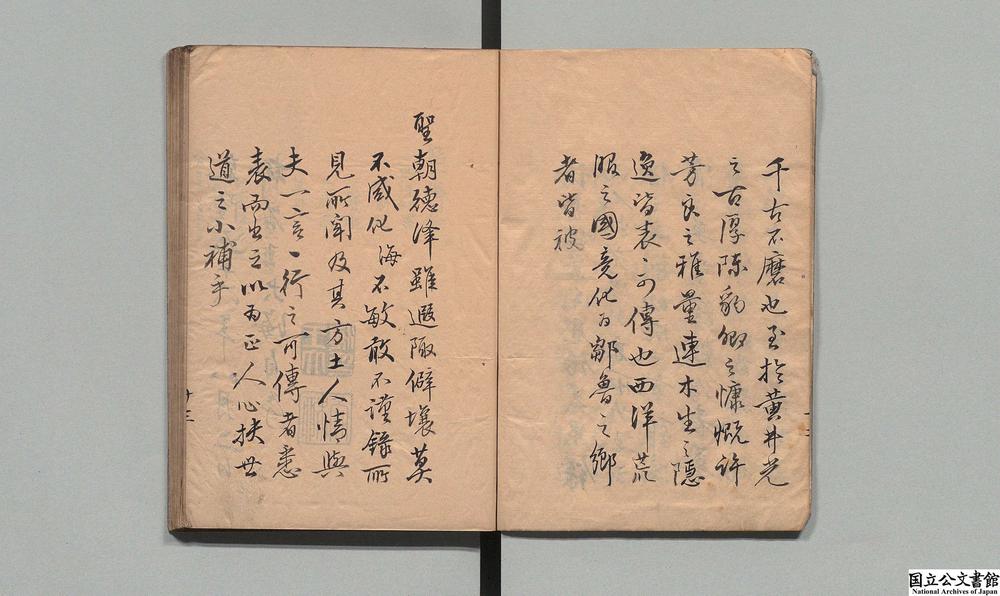 千古不磨也至於黄井光
之古厚陳豹卿之慷慨許
芳良之雅量連木生之隱
逸皆表〻可傳也西洋荒
服之國竟化為鄒魯之鄉
者皆被
聖朝德澤雖遐陬僻壤莫
不感化海不敏敢不謹錄所
見所聞及其方土人情與
夫一言一行之可傳者悉
表而出之以為正人心扶世
道之小補乎
十三
国立公文書館
National Archives of Japan